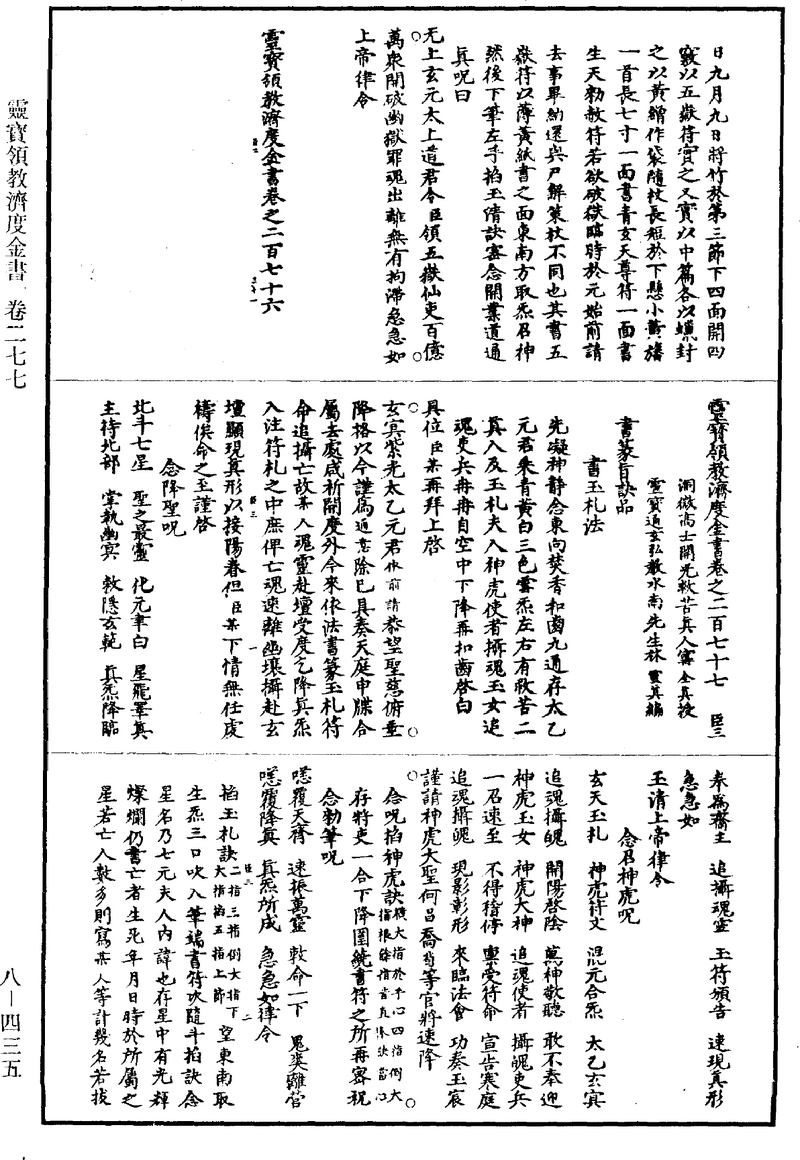 靈寶領教濟度金書 卷二七七
八—四三五
日九月九日將竹於第三節下四面開四
竅以五嶽符實之又實以中篇各以蠟封
之以黃繒作袋隨杖長短於下懸小黃旛
一首長七寸一面書青玄天尊符一面書
生天勑赦符若欲破獄臨時於元始前請
去事畢納還與尸解策杖不同也其書五
嶽符以薄黃紙書之面東南方取炁召神
然後下筆左手掐玉清訣密念開業道通
真呪曰
无上玄元太上道君令臣領五嶽仙吏百億
萬眾開破幽獄罪魂出離無有拘滯急急如
上帝律令
靈寶領教濟度金書卷之二百七十六
靈寶領教濟度金書卷之二百七十七 臣三
洞微高士開光救苦真人甯全真授
靈寶通玄弘教水南先生林靈真編
書篆旨訣品
書玉札法
先凝神靜念東向焚香扣齒九通存太乙
元君乘青黃白三色雲炁左右有救苦二
真人及玉札夫人神虎使者攝魂玉女追
魂吏兵冉冉自空中下降再扣齒啓白
具位臣某再拜上啓
玄冥紫光太乙元君依前請恭望聖慈俯垂
降格以今謹爲適意除已具奏天庭申牒合
屬去處咸祈開度外今來依法書篆玉札符
命追攝亡故某人魂靈赴壇受度乞降真炁
入注符札之中庶俾亡魂速離幽壤攝赴玄
壇顯現真形以接陽眷但臣某下情無任虔
禱俟命之至謹啓
念降聖呪
北斗七星 聖之最靈 化元聿白 星飛罩真
主持北部 掌執幽冥 敕隱玄範 真炁降臨
奉爲齋主 追攝魂靈 玉符頒告 速現真形
急急如
玉清上帝律令
念召神虎呪
玄天玉札 神虎符文 混元合炁 太乙玄冥
追魂攝魄 開陽啓陰 萬神敬聽 敢不奉迎
神虎玉女 神虎大神 追魂使者 攝魄吏兵
一召速至 不得稽停 稟受符命 宣告寒庭
追魂攝魄 現影彰形 來臨法會 功奏玉宸
謹請神虎大聖何昌喬句等官將速降
念呪掐神虎訣
存將吏一合下降圍繞書符之所再密祝
念勑筆呪
嘿覆天齋 速振萬靈 敕命一下 鬼爽離營
嘿覆降真 真炁所成 急急如律令
掐玉札訣二指三指倒大指下大指掐五指上節望東南取
生炁三口吹入筆端書符次隨斗掐訣念
星名乃七元夫人內諱也存星中有光輝
燦爛仍書亡者生死年月日時於所屬之
星若亡人數多則寫某人等計幾名若拔